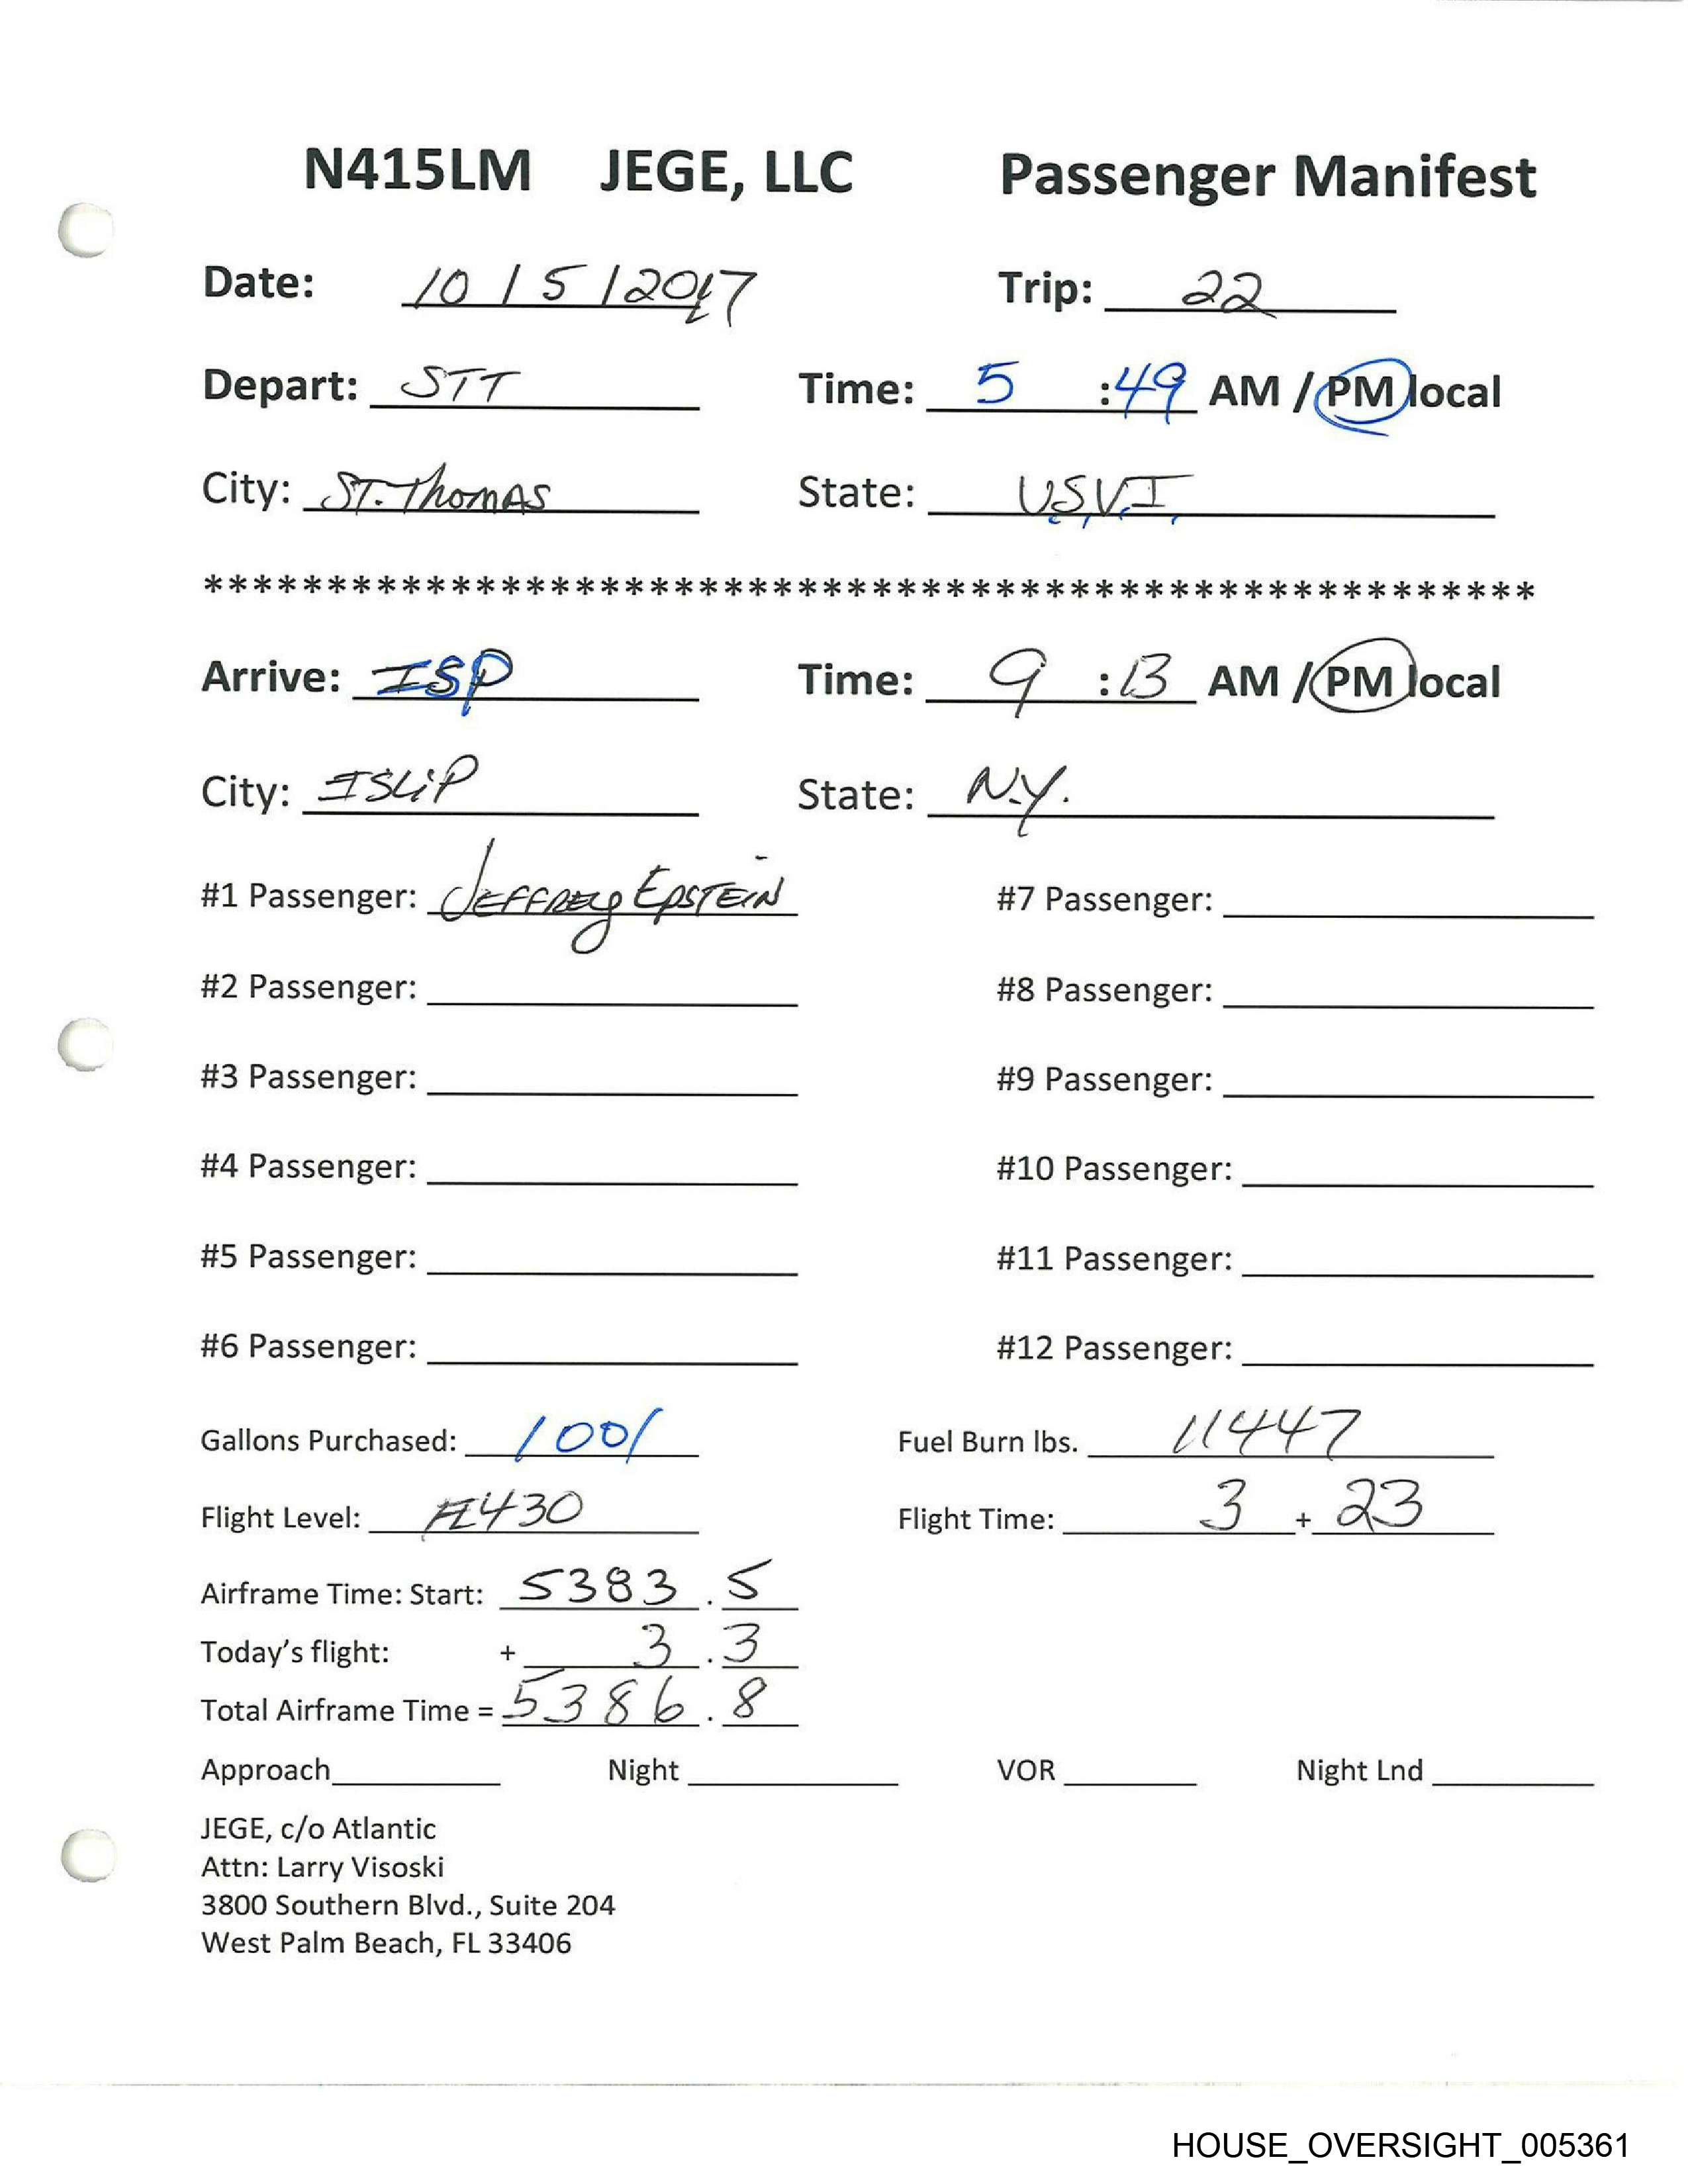 N415LM JEGE, LLC Passenger Manifest
Date: 10 / 5 / 2017 Trip: 22
Depart: STT Time: 5 :49 AM / PM local
City: ST. Thomas State: U.S.V.I.
******************************************************
Arrive: ISP Time: 9 :13 AM / PM local
City: ISLiP State: N.Y.
#1 Passenger: JEFFREY EPSTEIN #7 Passenger:
#2 Passenger: #8 Passenger:
#3 Passenger: #9 Passenger:
#4 Passenger: #10 Passenger:
#5 Passenger: #11 Passenger:
#6 Passenger: #12 Passenger:
Gallons Purchased: 1001 Fuel Burn lbs. 11447
Flight Level: FL430 Flight Time: 3 + 23
Airframe Time: Start: 5383 . 5
Today's flight: + 3 . 3
Total Airframe Time = 5386 . 8
Approach Night VOR Night Lnd
JEGE, c/o Atlantic
Attn: Larry Visoski
3800 Southern Blvd., Suite 204
West Palm Beach, FL 33406
HOUSE_OVERSIGHT_005361